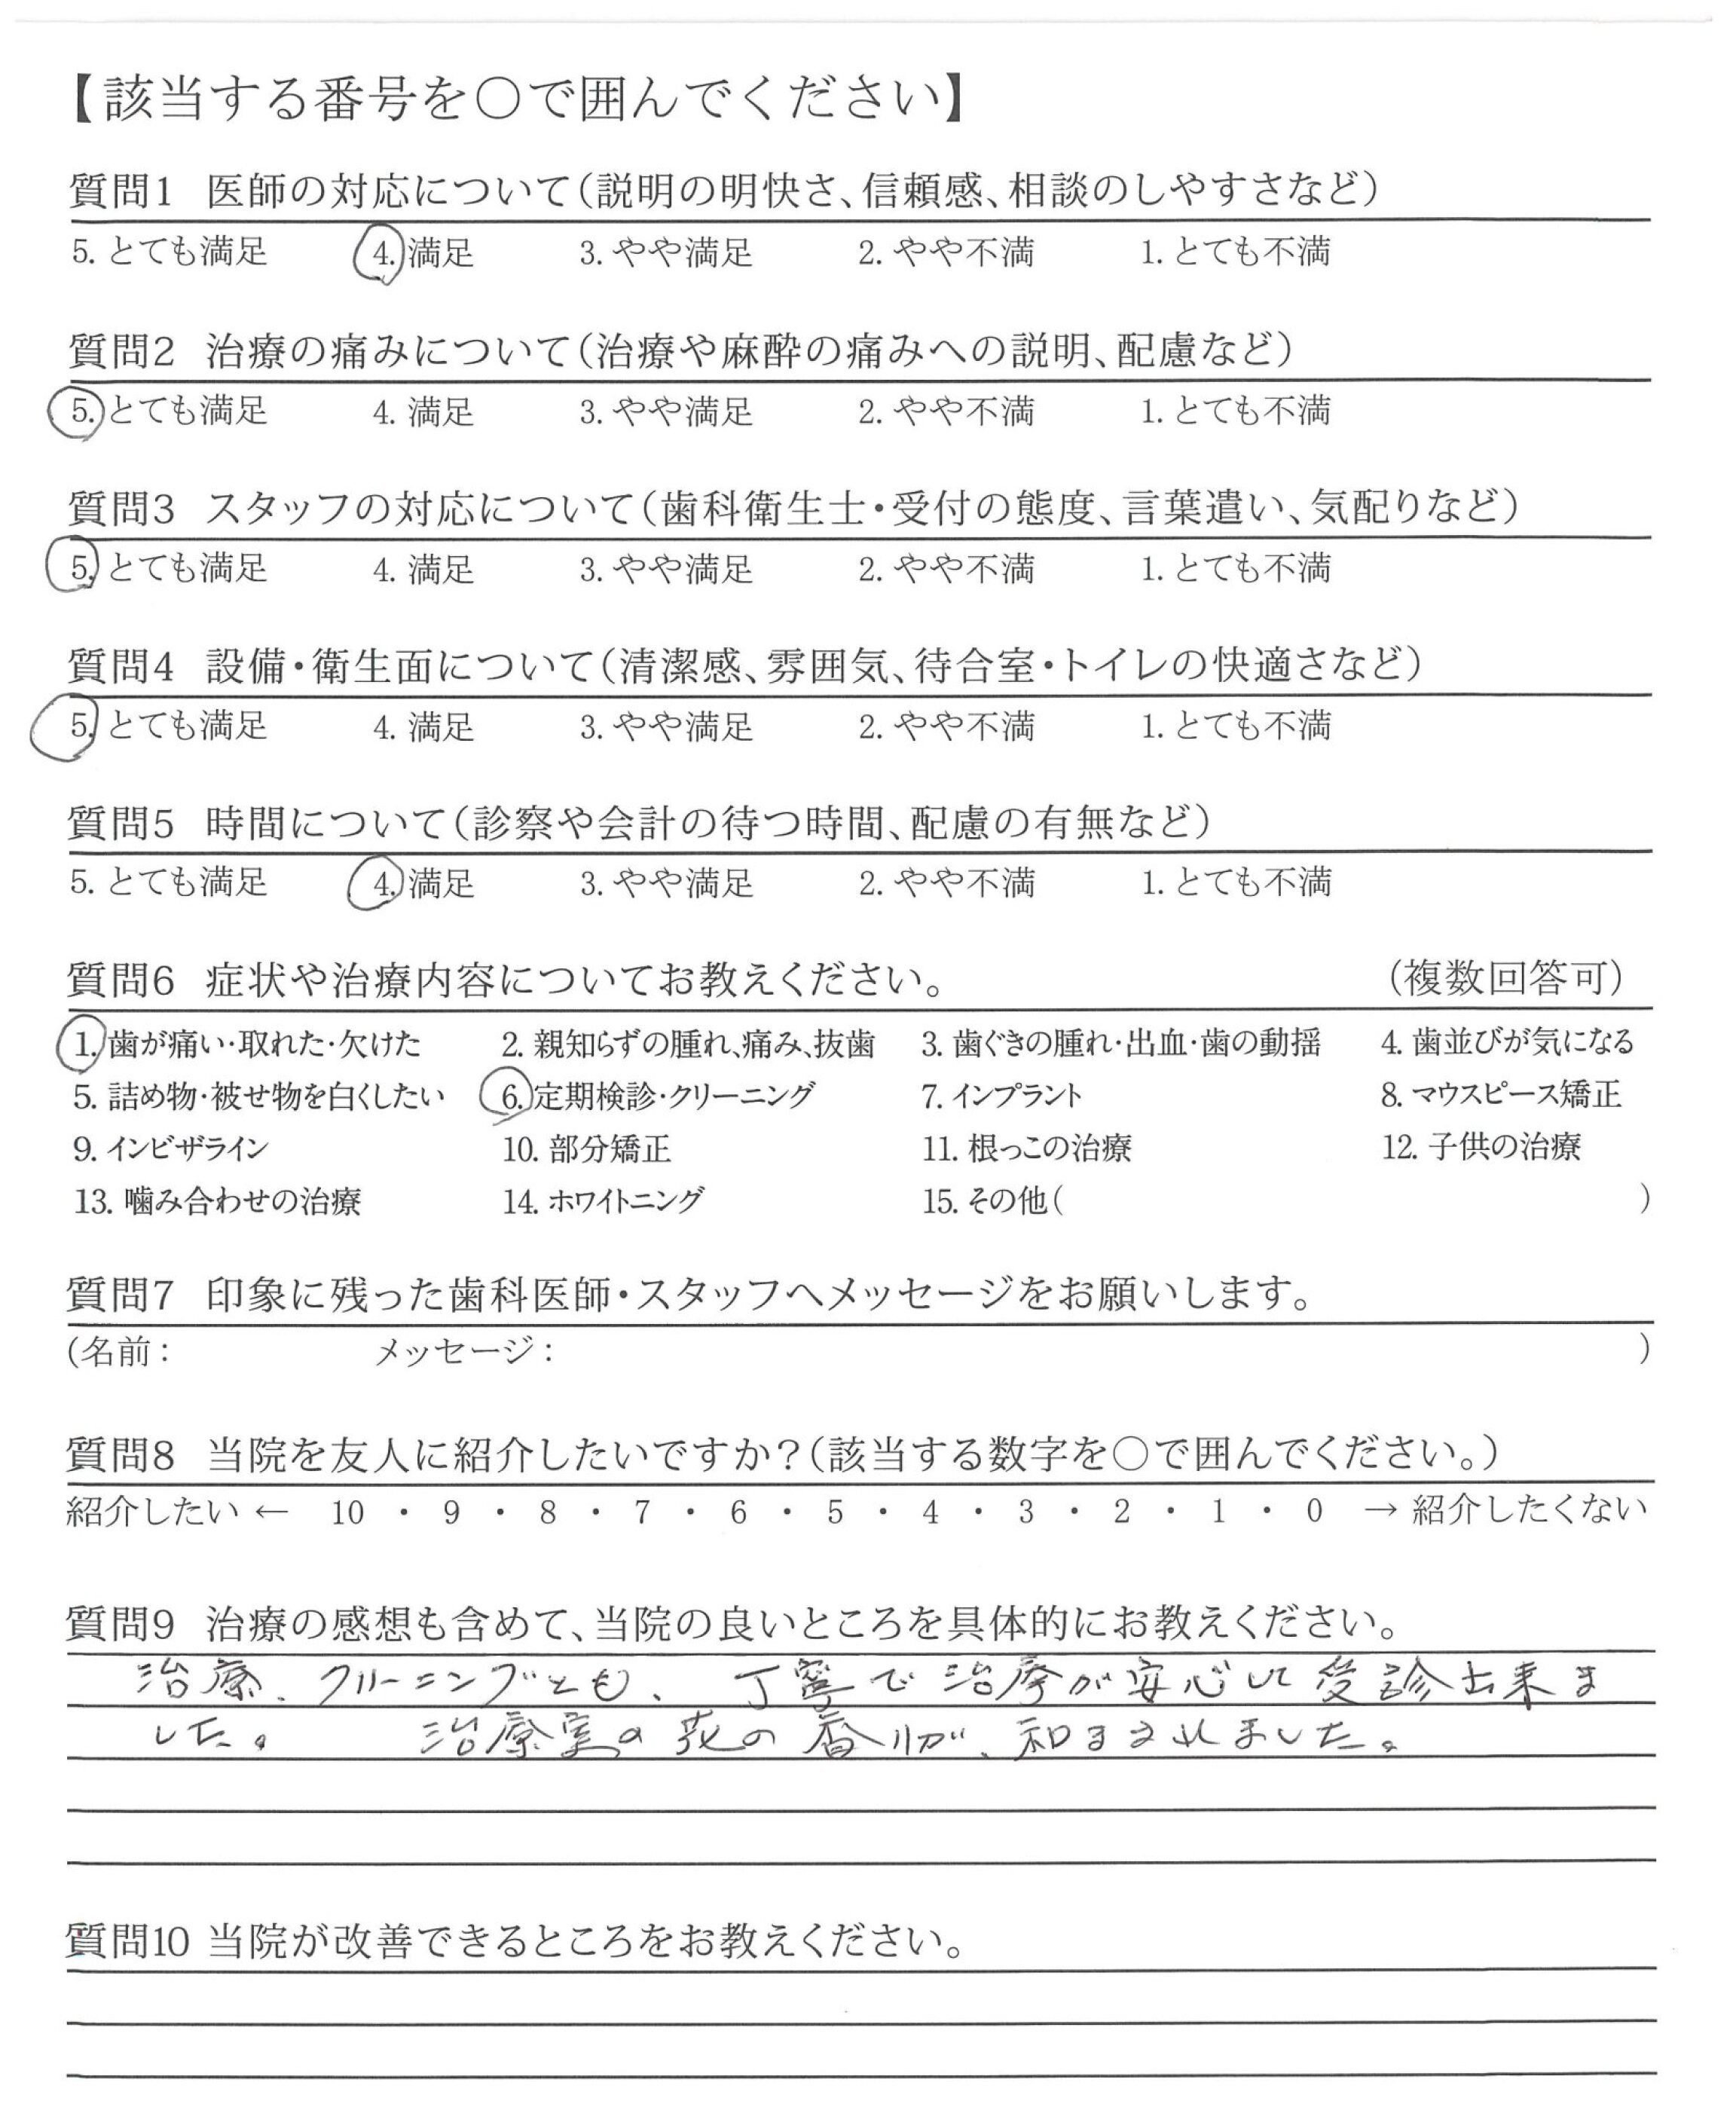 【該当する番号を○で囲んでください】
質問1 医師の対応について(説明の明快さ、信頼感、相談のしやすさなど)
5. とても満足 4. 満足 3. やや満足 2. やや不満 1. とても不満
質問2 治療の痛みについて(治療や麻酔の痛みへの説明、配慮など)
5. とても満足 4. 満足 3. やや満足 2. やや不満 1. とても不満
質問3 スタッフの対応について(歯科衛生士・受付の態度、言葉遣い、気配りなど)
5. とても満足 4. 満足 3. やや満足 2. やや不満 1. とても不満
質問4 設備・衛生面について(清潔感、雰囲気、待合室・トイレの快適さなど)
5. とても満足 4. 満足 3. やや満足 2. やや不満 1. とても不満
質問5 時間について(診察や会計の待つ時間、配慮の有無など)
5. とても満足 4. 満足 3. やや満足 2. やや不満 1. とても不満
質問6 症状や治療内容についてお教えください。 (複数回答可)
1. 歯が痛い・取れた・欠けた 2. 親知らずの腫れ、痛み、抜歯 3. 歯ぐきの腫れ・出血・歯の動揺 4. 歯並びが気になる
5. 詰め物・被せ物を白くしたい 6. 定期検診・クリーニング 7. インプラント 8. マウスピース矯正
9. インビザライン 10. 部分矯正 11. 根っこの治療 12. 子供の治療
13. 噛み合わせの治療 14. ホワイトニング 15. その他( )
質問7 印象に残った歯科医師・スタッフへメッセージをお願いします。
(名前: メッセージ: )
質問8 当院を友人に紹介したいですか?(該当する数字を○で囲んでください。)
紹介したい ← 10 ・ 9 ・ 8 ・ 7 ・ 6 ・ 5 ・ 4 ・ 3 ・ 2 ・ 1 ・ 0 → 紹介したくない
質問9 治療の感想も含めて、当院の良いところを具体的にお教えください。
治療、クリーニングとも、丁寧で治療が安心して受診出来ま
した。 治療室の花の香りが、和まされました。
質問10 当院が改善できるところをお教えください。